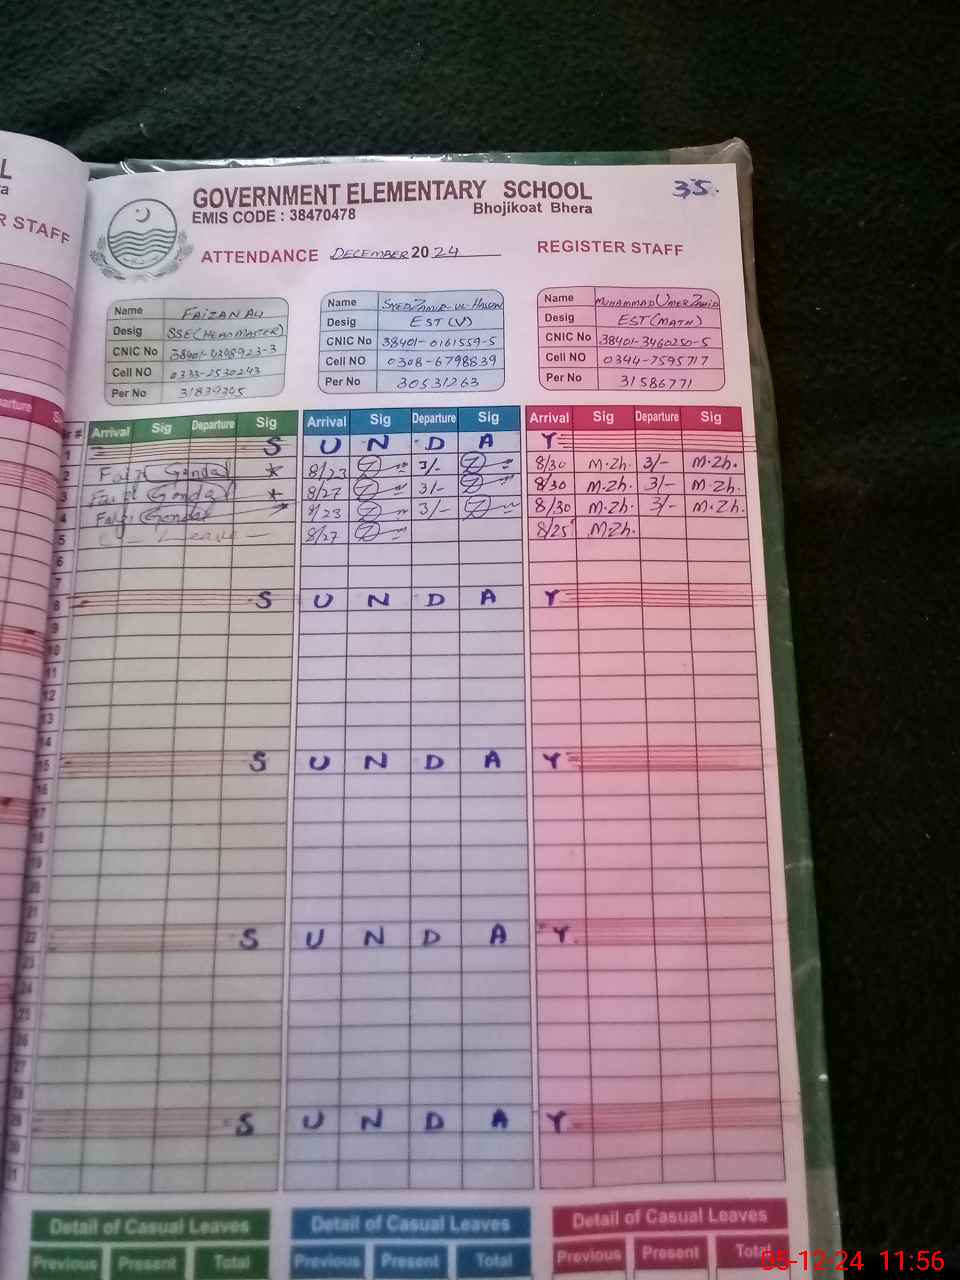 L
ra
R STAFF
arture
S
GOVERNMENT ELEMENTARY SCHOOL
35
EMIS CODE : 38470478
Bhojikoat Bhera
ATTENDANCE DECEMBER 2024
REGISTER STAFF
Name FAIZAN ALI
Desig SSE (HEADMASTER)
CNIC No
Cell NO 0333-2530243
Per No 31839205
Name
Desig EST (V)
CNIC NO 38401-0161559-5
Cell NO 0308-6798839
Per No 30531263
Name MUHAMMAD UMER ZAHID
Desig EST (MATH)
CNIC NO 38401-3460250-5
Cell NO 0344-7595717
Per No 31586771
# Arrival Sig Departure Sig Arrival Sig Departure Sig Arrival Sig Departure Sig
1 S U N D A Y
2 Faizi Gondal 8/23 3/- 8/30 M.Zh. 3/- M.Zh.
3 Faizi Gondal 8/27 3/- 8/30 M.Zh. 3/- M.Zh.
4 Faizi Gondal 8/23 3/- 8/30 M.Zh. 3/- M.Zh.
5 Leave 8/27 8/25 M.Zh.
6
7
8 S U N D A Y
9
10
11
12
13
14
15 S U N D A Y
16
17
18
19
20
21
22 S U N D A Y
23
24
25
26
27
28
29 S U N D A Y
30
31
Detail of Casual Leaves Detail of Casual Leaves Detail of Casual Leaves
Previous Present Total Previous Present Total Previous Present Total
05-12-24 11:56